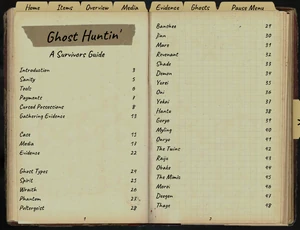 Home Items Overview Media Evidence Ghosts Pause Menu
Ghost Huntin'
A Survivors Guide
Introduction 3
Sanity 5
Tools 6
Payments 7
Cursed Possessions 8
Gathering Evidence 13
Case 15
Media 17
Evidence 22
Ghost Types 24
Spirit 25
Wraith 26
Phantom 27
Poltergeist 28
1
Banshee 29
Jinn 30
Mare 31
Revenant 32
Shade 33
Demon 34
Yurei 35
Oni 36
Yokai 37
Hantu 38
Goryo 39
Myling 40
Onryo 41
The Twins 42
Raiju 43
Obake 44
The Mimic 45
Moroi 46
Deogen 47
Thaye 48
2